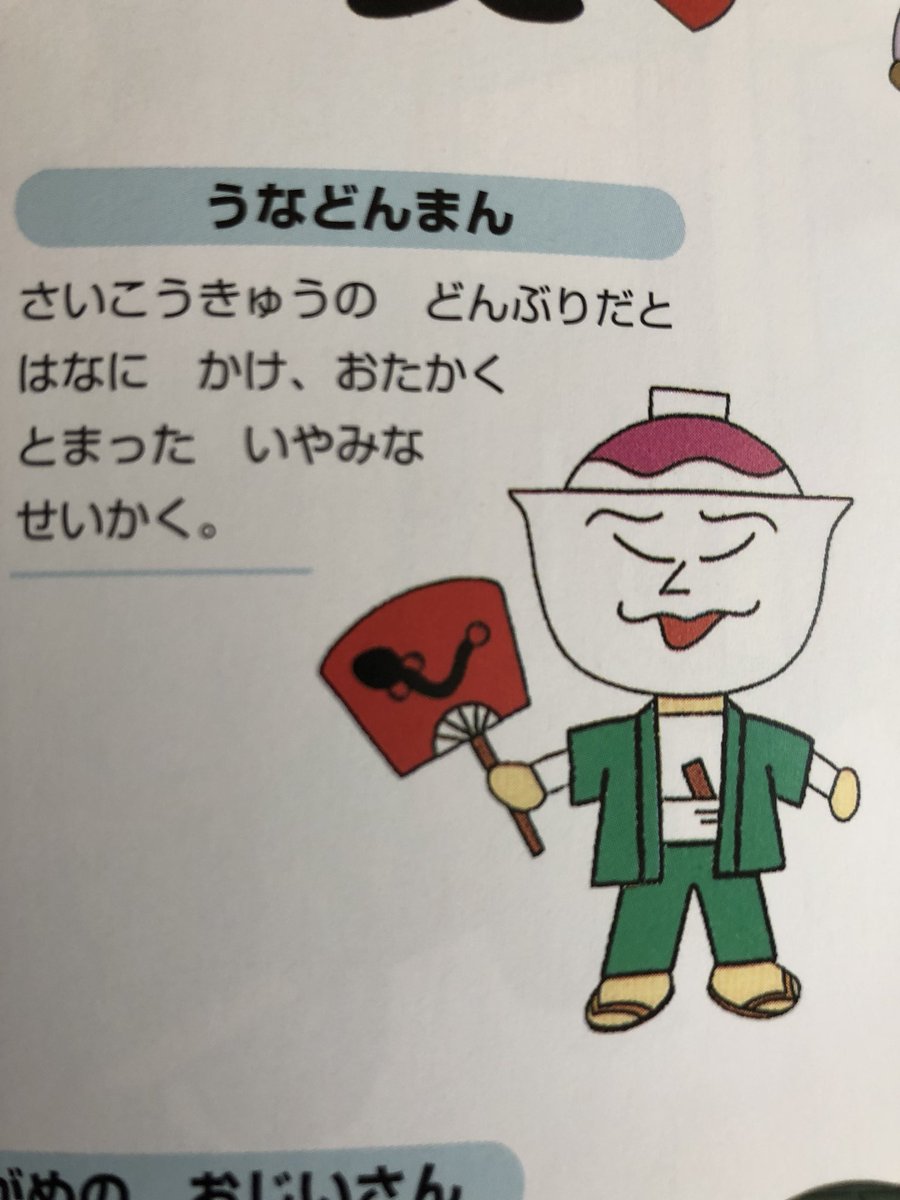 うなどんまん
さいこうきゅうの　どんぶりだと
はなに　かけ、おたかく
とまった　いやみな
せいかく。
がめの　おじいさん